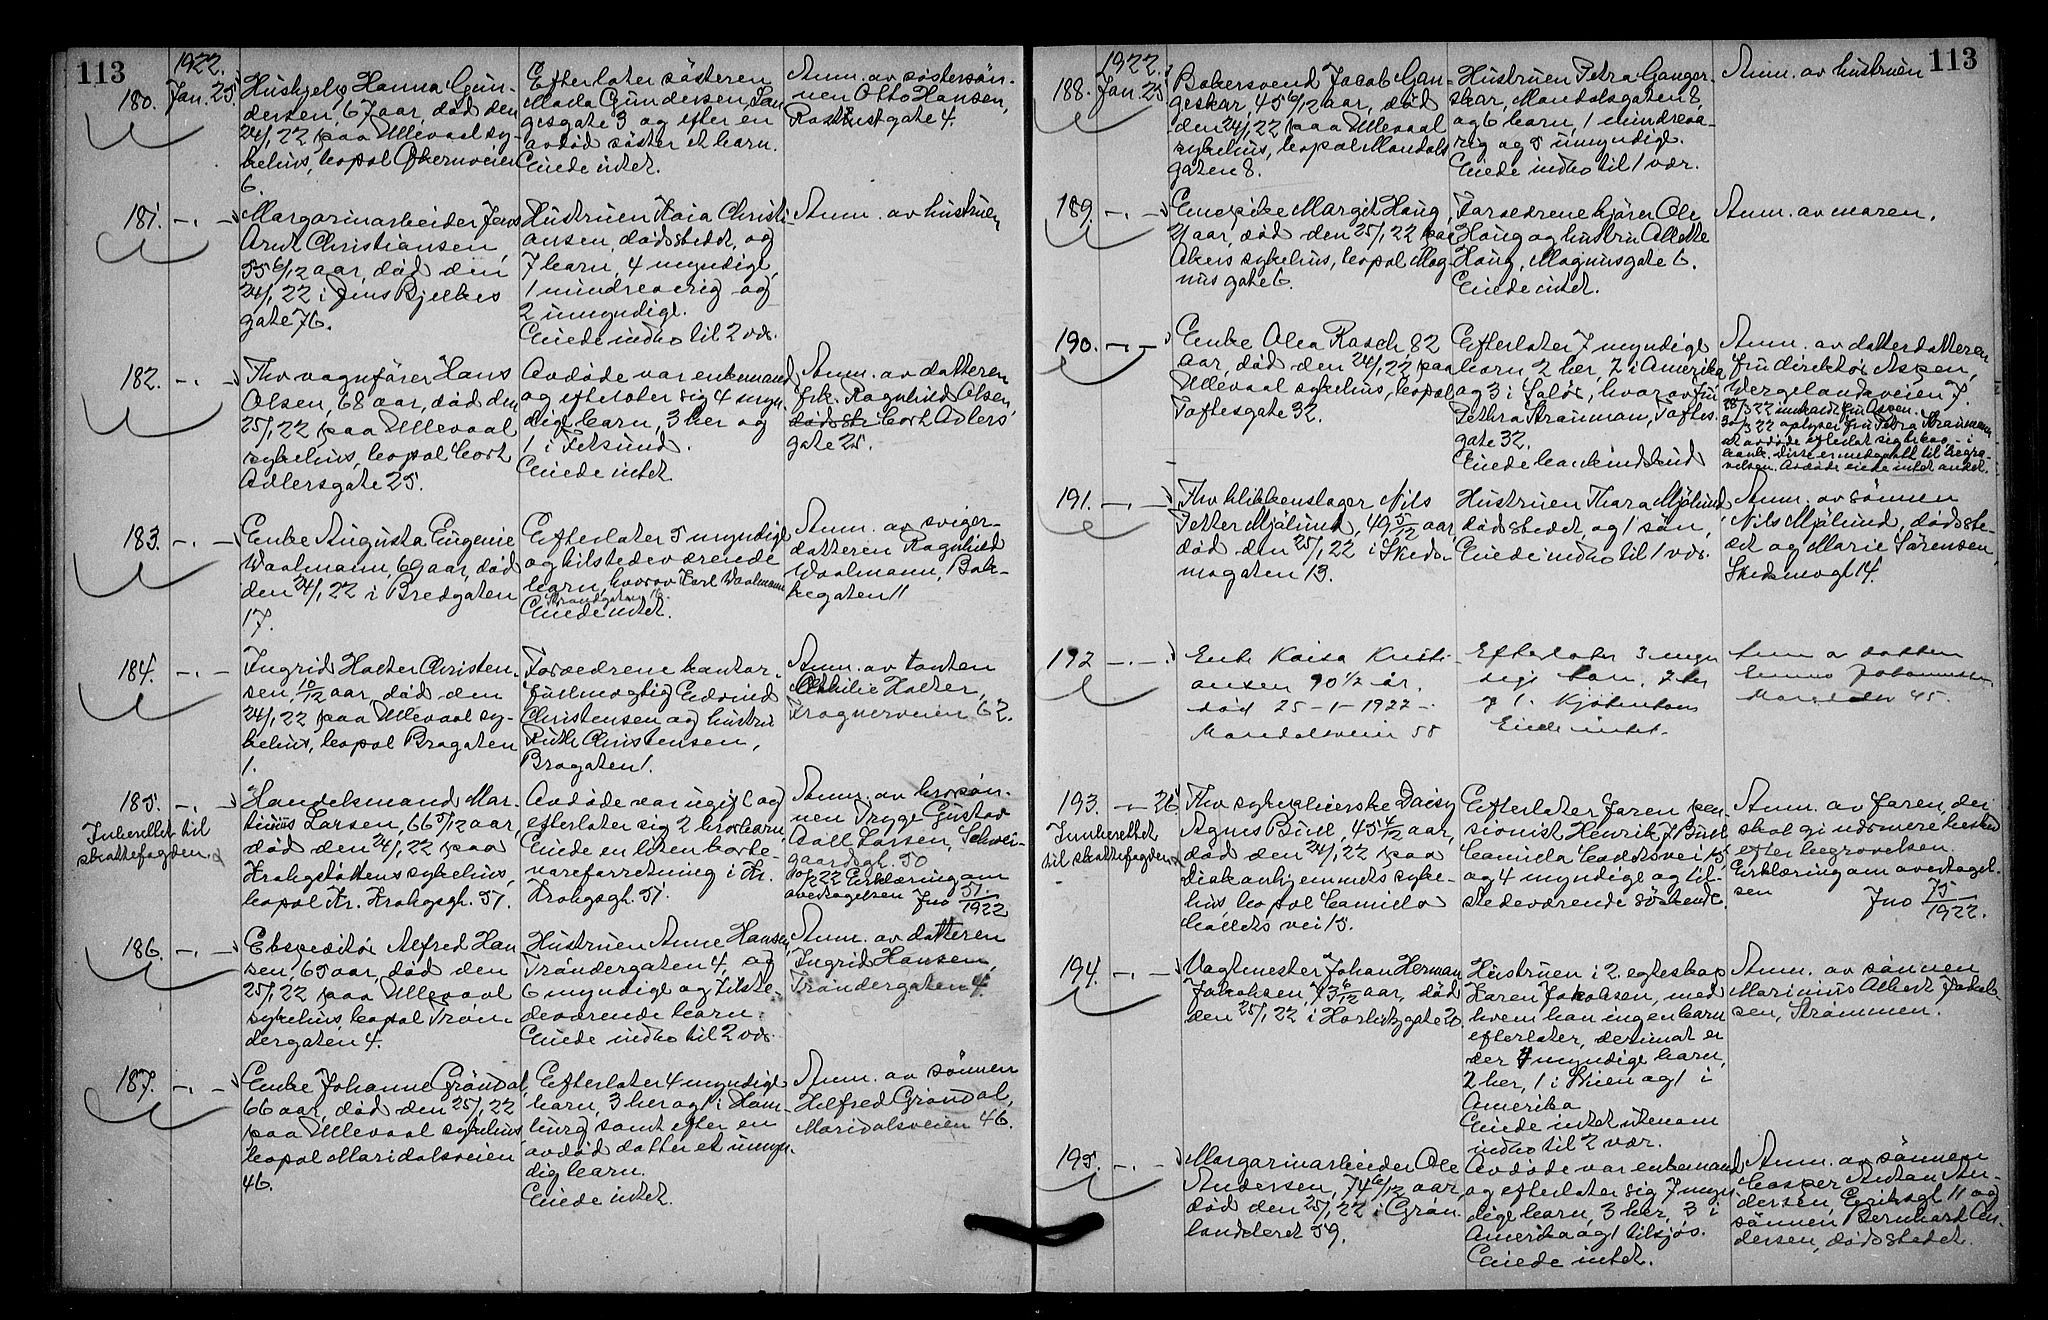 113
1922.
180. Jan. 25
Hushjelp Hanna Gun-
dersen, 67 aar, død den
24/1 22 paa Ullevaal sy-
kehus, bopæl Økernveien
6.
Efterlater søsteren
Mada Gundersen, Lan
gesgate 3 og efter en
avdød søster et barn.
Eiede intet.
Anm. av søstersøn-
nen Otto Hansen,
gate 4.
181. -„-
Margarinarbeider Jens
Arnt Christiansen,
55 6/12 aar, død den
24/1 22 i Jens Bjelkes
gate 76.
Hustruen Kaia Christi
ansen, dødsstedet, og
7 barn, 4 myndige,
1 mindreaarig og
2 umyndige.
Eiede indbo til 2 vær.
Anm. av hustruen
182. -„-
Fhv vognfører Hans
Olsen, 68 aar, død den
25/1 22 paa Ullevaal
sykehus, bopæl Cort
Adlersgate 25.
Avdøde var enkemand
og efterlater sig 4 myn-
dige barn, 3 her og
1 i Fetsund.
Eiede intet.
Anm. av datteren
frk. Ragnhild Olsen,
dødsste Cort Adlers
gate 25.
183. -„-
Enke Augusta Eugenie
Waalmann, 69 aar, død
den 24/1 22 i Bredgaten
17.
Efterlater 5 myndige
og tilstedeværende
barn, hvorav Karl Waalmann
Strandgaten 16.
Eiede intet.
Anm. av sviger-
datteren Ragnhild
Waalmann, Bak-
kegaten 11
184. -„-
Ingrid Holter Christen-
sen, 0/12 aar, død den
24/1 22 paa Ullevaal sy-
kehus, bopæl Bragaten
1.
Forældrene kontor-
fuldmægtig Edvind
Christensen og hustru
Ruth Christensen,
Bragaten 1.
Anm. av tanten
Holter,
Frognerveien 62.
185. -„-
Innberettet til
skattefogden.
Handelsmand Mar-
tinius Larsen, 66 5/12 aar,
død den 24/1 22 paa
Krohgstøttens sykehus,
bopæl Kr. Krohgsgt. 51.
Avdøde var ugift og
efterlater sig 2 brorbarn,
Eiede en liten korte-
vareforretning i Kr.
Krohgsgt. 51.
Anm. av brorsøn-
nen Trygve Gustav
Larsen, Schwei-
gaardsgt. 50
22 Erklæring om
overtagelsen Jno 51/1922
186. -„-
Ekspeditør Alfred Han
sen, 65 aar, død den
25/1 22 paa Ullevaal
sykehus, bopæl Trøn
dergaten 4.
Hustruen Anne Hansen,
Trøndergaten 4, og
6 myndige og tilste-
deværende barn.
Eiede indbo til 2 vær.
Anm. av datteren
Ingrid Hansen,
Trøndergaten 4.
187. -„-
Enke Johanne Grøndal,
66 aar, død den 25/1 22
paa Ullevaal sykehus
bopæl Maridalsveien
46.
Efterlater 4 myndige
barn, 3 her og 1 i Ham
burg samt efter en
avdød datter et umyn-
dig barn.
Eiede intet.
Anm. av sønnen
Hilfred Grøndal,
Maridalsveien 46.
113
1922.
188. Jan. 25
Bakersvend Jacob Gan-
geskar, 45 6/12 aar, død
den 24/1 22 paa Ullevaal
sykehus, bopæl Mandals
gaten 8.
Hustruen Petra Ganger-
skar, Mandalsgaten 8,
og 6 barn, 1 mindreaa-
rig og 5 umyndige.
Eiede indbo til 1 vær.
Anm. av hustruen
189. -„-
Enepike Margit Haug,
21 aar, død den 25/1 22 paa
Akers sykehus, bopæl Mag-
nusgate 6.
Forældrene kjører Ole
Haug og hustru Allette
Haug, Magnusgate 6.
Eiede intet.
Anm. av moren.
190. -„-
Enke Olea Rasch 82
aar, død den 24/1 22 paa
Ullevaal sykehus, bopæl
Toftesgate 32.
Efterlater 7 myndige
barn 2 her, 2 i Amerika
og 3 i Solør, hvorav fru
Pethra Strauman, Toftes-
gate 32.
Eiede bankindskud
Anm. av datterdatteren
fru direktør Aspen,
Wergelandsveien 7.
28/3 22 innkaldt fru Aspen.
30/3 22 oplyser fru Petra Straumann
at avdøde efterlot sig bkbok i
bank. Disse er medgaatt til begra-
velsen. Avdøde eiede intet andet.
191. -„-
Fhv blikkenslager Nils
Petter Mjølund, 49 5/12 aar
død den 25/1 22 i Skeds-
mogaten 13.
Hustruen Thora Mjølund,
dødsstedet, og 1 søn,
Eiede indbo til 1 vær.
Anm. av sønnen
Nils Mjølund, dødsste-
det og Marie Sørensen,
Skedsmogt 14.
192 -„-
Enke Kaisa Kristi
ansen 90 1/2 år.
død 25-1-1922-
Mandalsveien 58
Efterlater 3 myn
dige barn, 2 her
og 1. Kjøbenhavn
Eiede intet.
Anm av datter
Johannessen
45.
193. -„- 26
Innberettet
til skattefogden
Fhv sykepleierske Daisy
Agnes Bull, 45 4/12 aar,
død den 24/1 22 paa
diakonhjemmets syke-
hus bopæl Camilla
Colletts vei 15.
Efterlater faren pen
sionist Henrik J Bull
Camilla Colletsvei 15
og 4 myndige og til-
stedeværende søskende.
Anm. av faren, der
skal gi nærmere besked
efter begravelsen.
Erklæring om overtagel-
sen
Jno 75/1922.
194. -„-
Vagtmester Johan Herman
Jakobsen, 73 6/12 aar, død
den 25/1 22 i Hasliesgate 20.
Hustruen i 2. egteskap
Karen Jakobsen, med
hvem han ingen barn
efterlater, derimot er
der 4 myndige barn,
2 her, 1 i Skien og 1 i
Amerika
Eiede intet utenom
indbo til 2 vær.
Anm. av sønnen
Marinius Albert Jakob-
sen, Strømmen.
195. -„-
Margarinarbeider Ole
Andersen, 74 6/12 aar,
død den 25/1 22 i Grøn-
landsleret 59.
Avdøde var enkemand
og efterlater sig 7 myn
dige barn, 3 her, 3 i
Amerika og 1 tilsjøs.
Eiede intet.
Anm. av sønnen
Casper Anton An-
dersen, Eriksgt 11 og
sønnen Bernhard An-
dersen, dødsstedet.